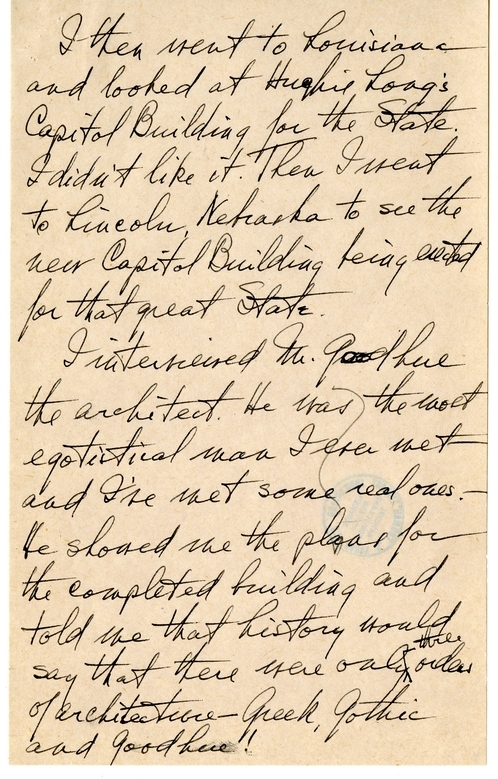 I then went to Louisiana
and looked at Hughie Long's
Capitol Building for the State.
I didn't like it. Then I went
to Lincoln, Nebraska to see the
new Capitol Building being erected
for that great State.
I interviewed Mr. Goodhue
the architect. He was the most
egotistical man I ever met
and I've met some real ones.—
He showed me the plans for
the completed building and
told me that history would
say that there were only three orders
of architecture— Greek, Gothic
and Goodhue!